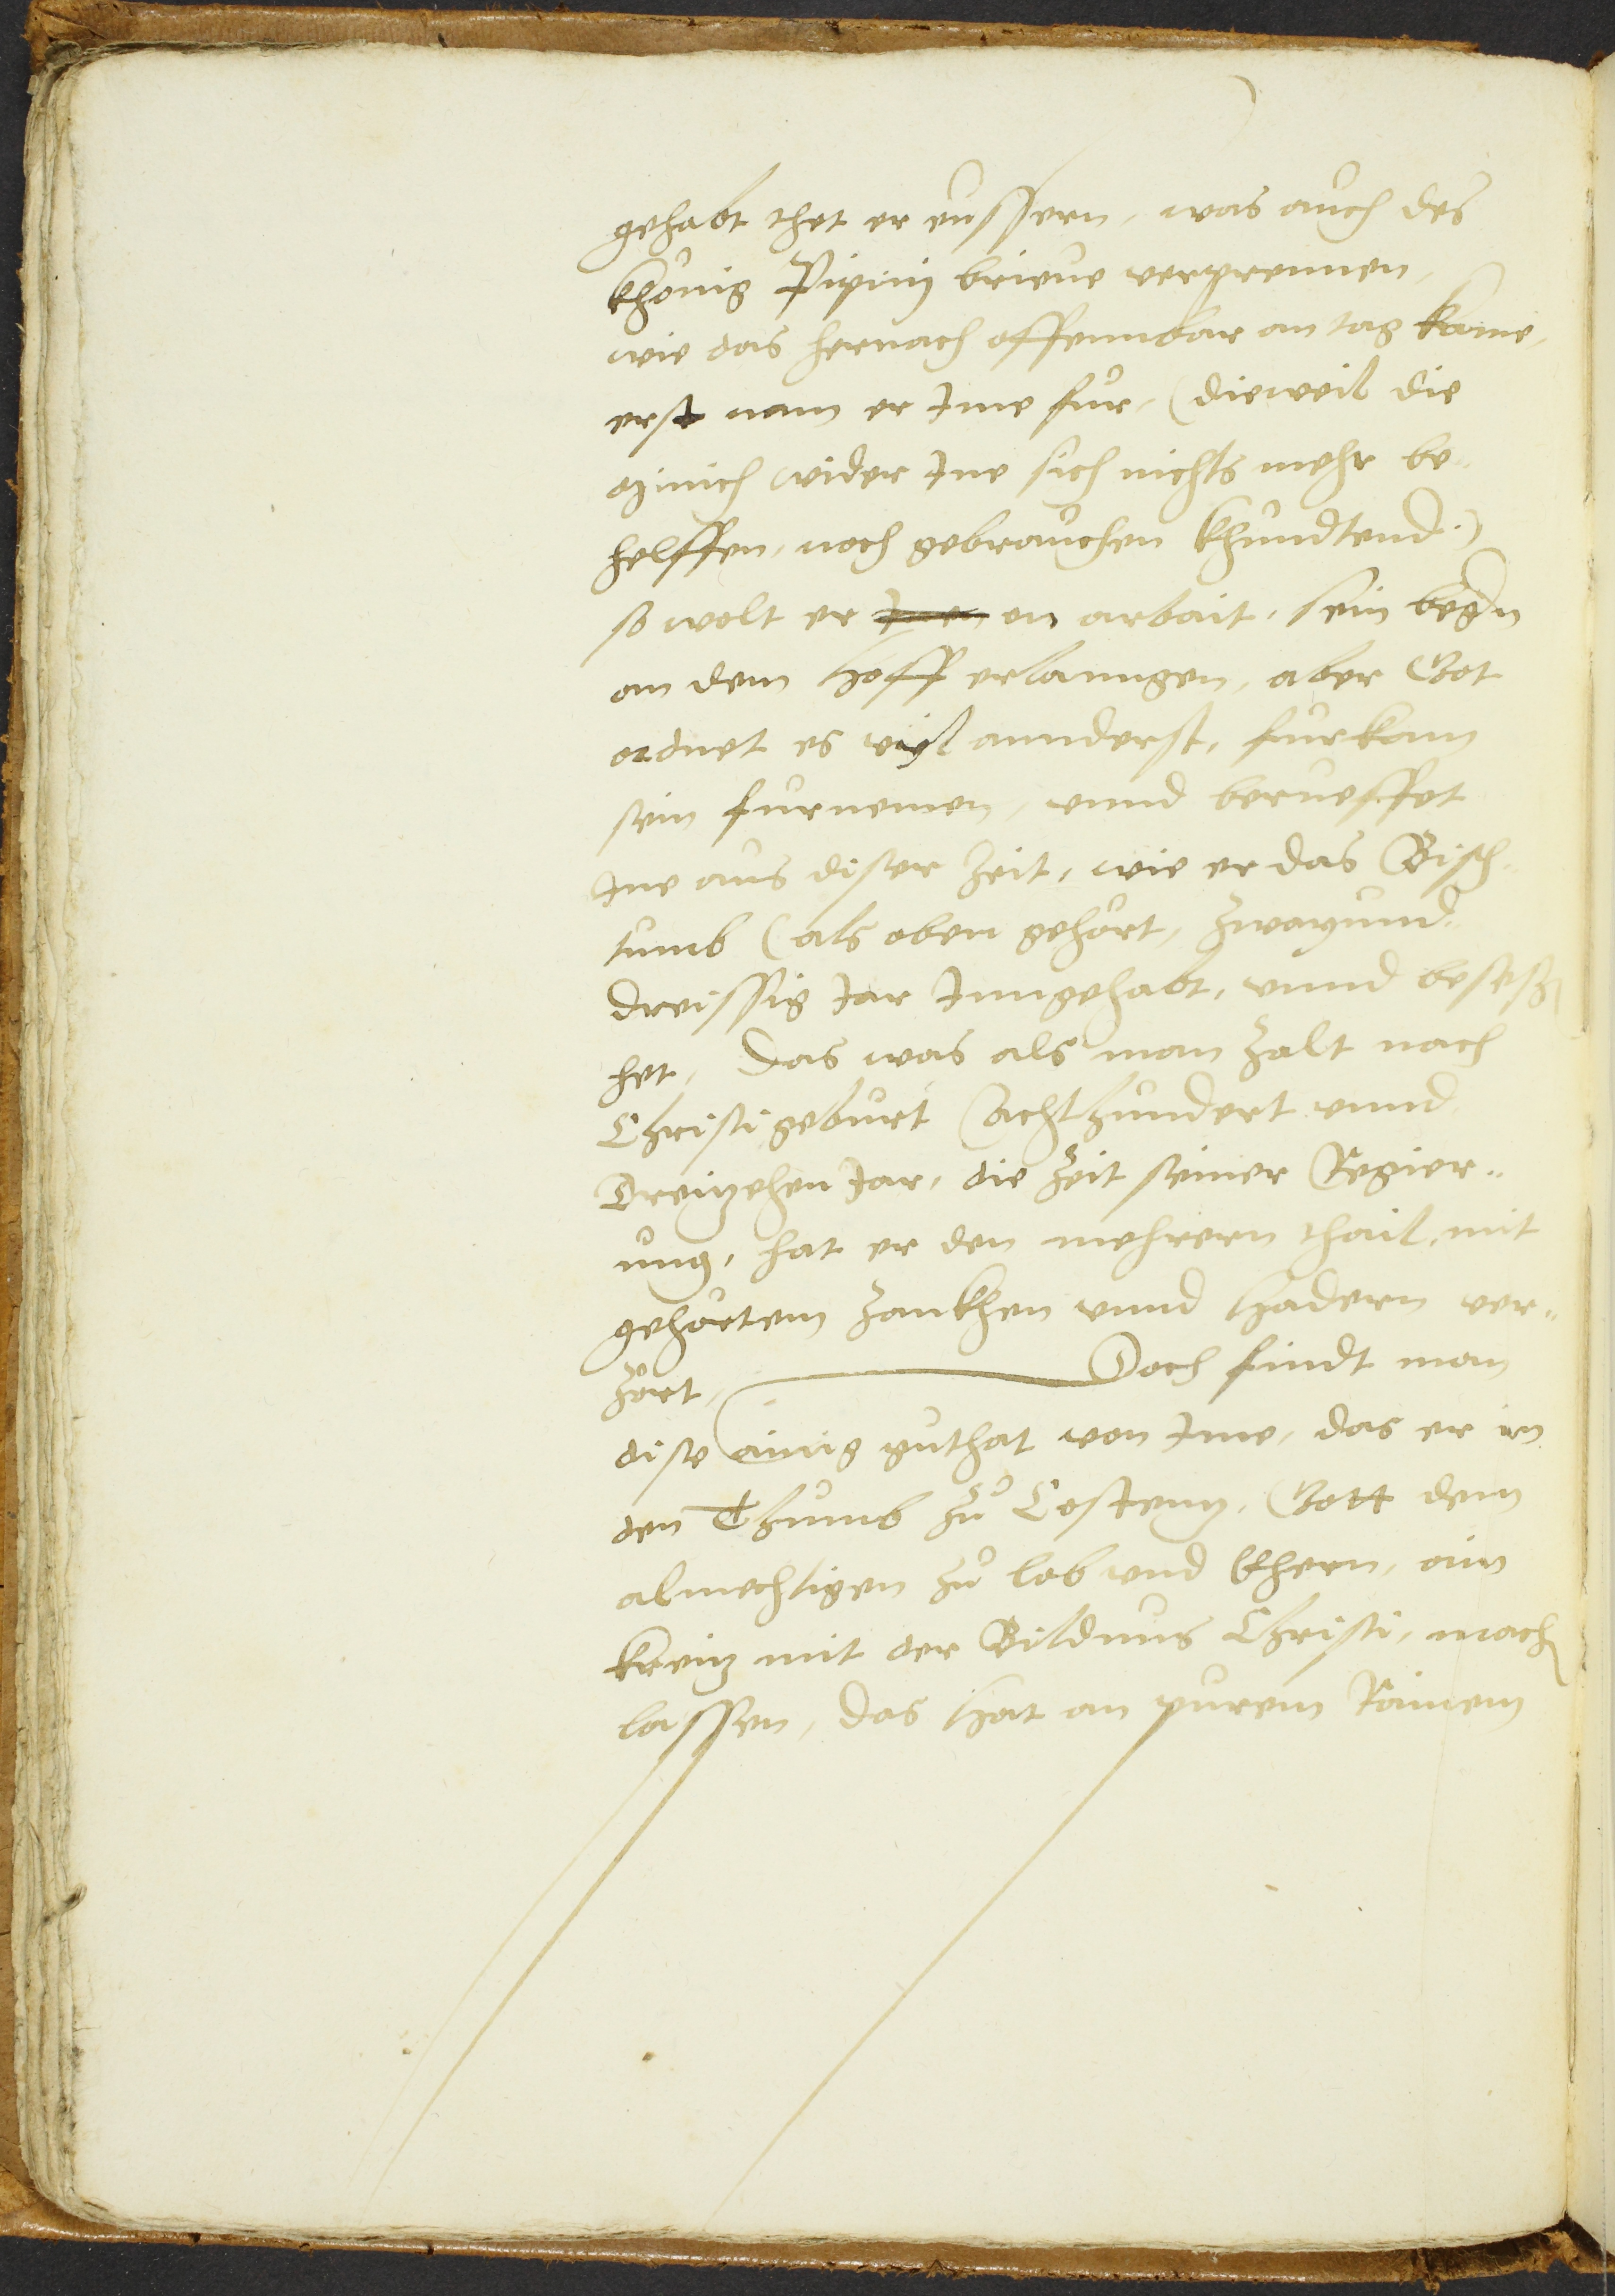 gehabt thet er eussern, was auch des
khönig Pipinj brieue verprennen,
wie das hernach offennbar an tag kame,
erst nam er Jme für, (dieweil die
münich wider Jne sich nichts mehr be-
helffen, noch gebrauchen khundtend.)
so wolt er on arbait, sein begern
an dem Hoff erlanngen, aber Got
ordnet es viel annderst, furkam
sein furnemen, vnnd berueffet
Jne aus diser zeit, wie er das Bisch-
tumb (als oben gehört, zwayund-
dreissig Jar Jnngehabt, vnnd besessen
het, Das was als man zalt nach
Christi geburt Achthundert vnnd
Dreizehen Jar, die Zeit seiner Regier-
ung, hat er den mehrern thail, mit
gehörtem zankhen vnnd Hadern ver-
zört, Doch findt man
dise ainig guthat von Jme, das er in
den Thumb zu Costenz, Gott dem
almechtigen zu lob vnd Ehern, ain
kreiz mit der Bildnus Christi, machen
lassen, das Hat an purem Rainem